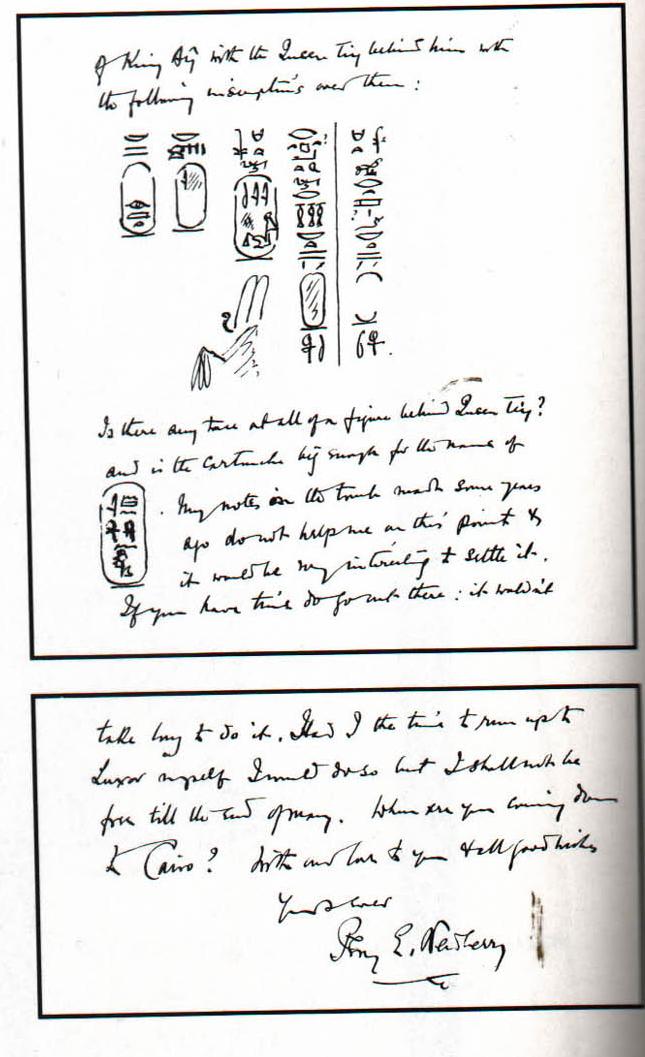 of King Aÿ with the Queen Tiy behind him with
the following inscriptions over them :
Is there any trace at all of a figure behind Queen Tiy?
and is the cartouche big enough for the name of
. My notes on the tomb made some years
ago do not help me on this point &
it would be very interesting to settle it.
If you have time do go out there : it wouldn't
take long to do it. Had I the time to run up to
Luxor myself I would do so but I shall not be
free till the end of may. When are you coming down
to Cairo? With our love to you & all good wishes
Yours ever
Percy E. Newberry